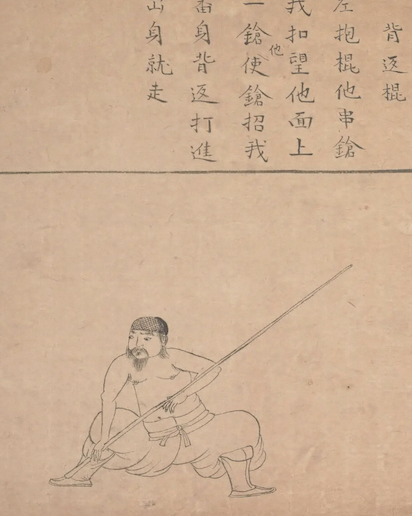 背返棍
左抱棍他串鎗
我扣望他面上
一鎗他使鎗招我
番身背返打進
出身就走